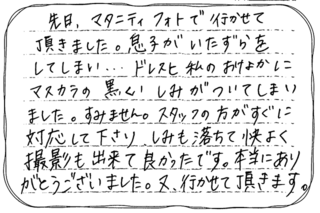 先日、マタニティフォトで行かせて
頂きました。息子がいたずらを
してしまい... ドレスと私のおけよかに
マスカラの黒くいしみがついてしまい
ました。すみません。スタッフの方がすぐに
対応して下さり、しみも落ちて快よく
撮影も出来て良かったです。本当にあり
がとうございました。又、行かせて頂きます。